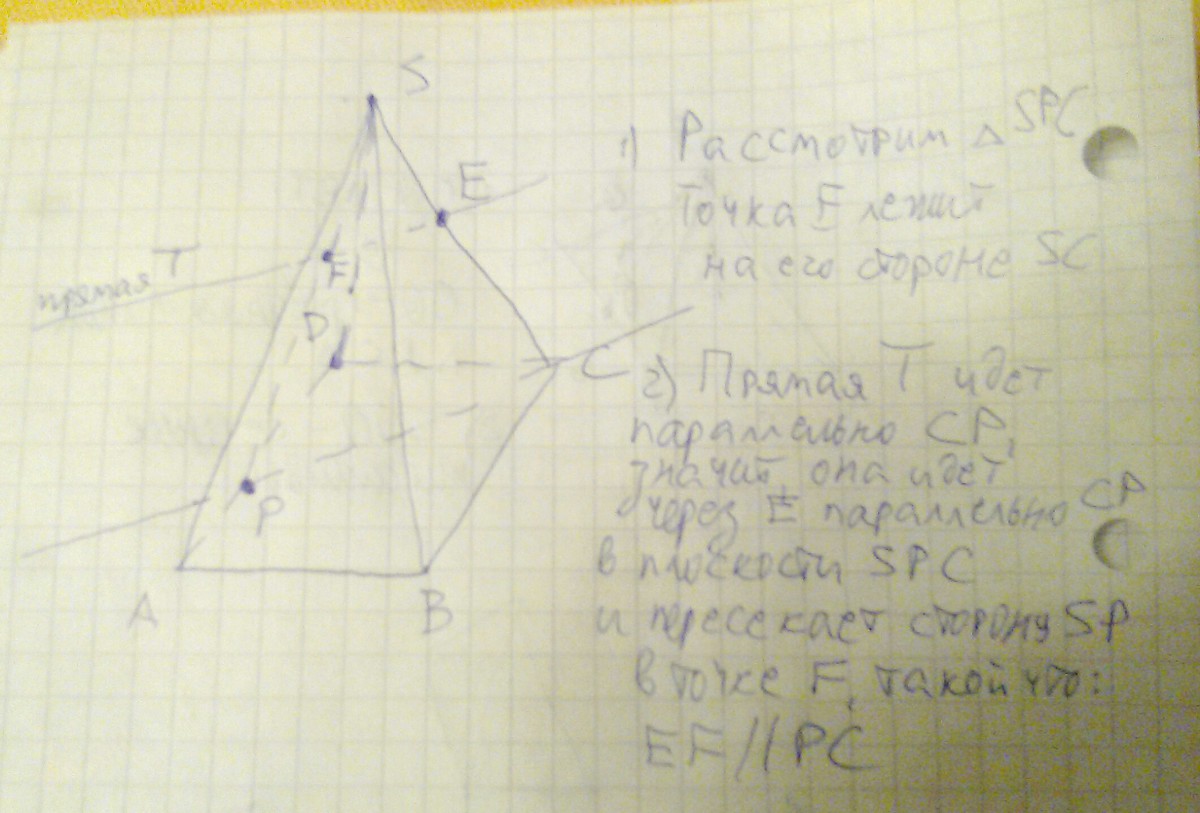 S
E
прямая T
F
D
C
P
A
B
1) Рассмотрим △ SPC
Точка E лежит
на его стороне SC
2) Прямая T идет
параллельно CP,
значит, она идет
через E параллельно CP
в плоскости SPC
и пересекает сторону SP
в точке F, такой что:
EF//PC